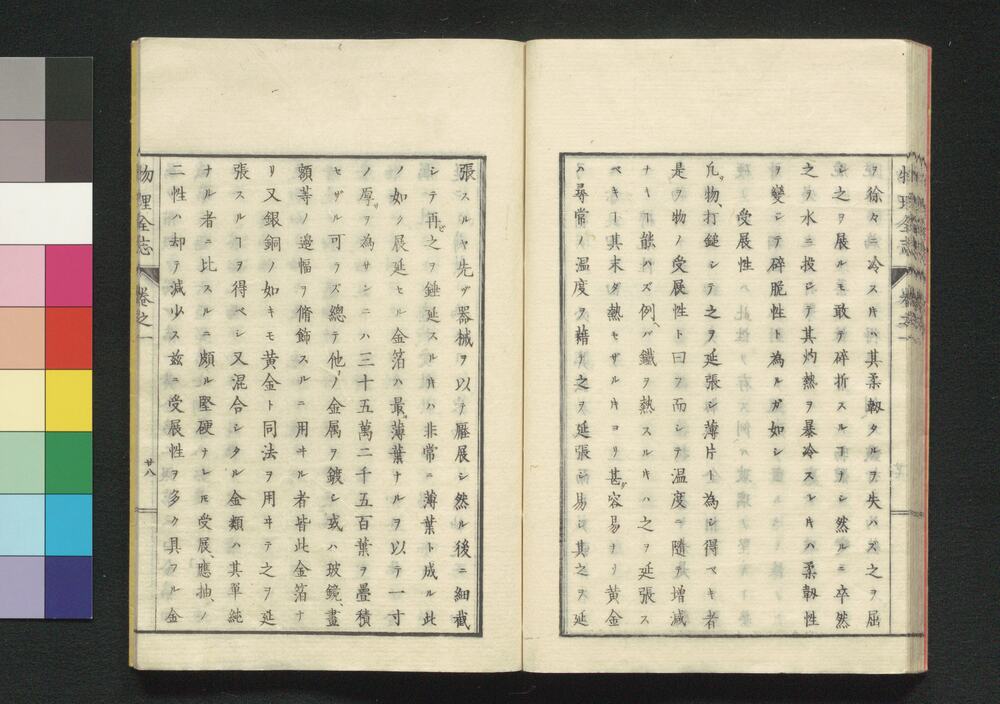 ヲ徐々ニ冷スkハ其柔軔タルヲ失ハズ之ヲ屈
シ之ヲ展ルモ敢テ碎折スルヿナシ然ルニ卒然
之ヲ水ニ投シテ其灼熱ヲ暴冷スレ𪜈ハ柔軔性
ヲ變シテ碎脆性ト為ルガ如シ
受展性
凢物、打鎚シテ之ヲ延張シ薄片ト為シ得ベキ者
是ヲ物ノ受展性ト曰フ而シテ温度ニ隨ヲ增減
ナキヿ能ハズ例ヘバ鐵ヲ熱スルキハ之ヲ延張ス
ベキヿ其未ダ熱セザルキヨリ甚容易ナリ黄金
ハ尋常ノ温度ヲ藉テ之ヲ延張シ易シ其之ヲ延
張スルヤ先ヅ器械ヲ以テ壓展シ然ル後ニ細截
シテ再之ヲ錘延スルキハ非常ニ薄葉ト成ル此
ノ如ク展延セル金箔ハ最薄葉ナルヲ以テ一寸
ノ厚ヲ為サンニハ三十五萬二千五百葉ヲ疊積
セザル可ラズ總テ他ノ金属ヲ鍍シ或ハ玻鏡、畫
額等ノ邉幅ヲ脩飾スルニ用ヰル者皆此金箔ナ
リ又銀銅ノ如キモ黄金ト同法ヲ用ヰテ之ヲ延
張スルヿヲ得ベシ又混合シタル金類ハ其單純
ナル者ニ比スルニ頗ル堅硬ナレ𪜈受展、應抽、ノ
二性ハ却テ減少ス兹ニ受展性ヲ多ク具フル金
物理全志
卷之一
廿八